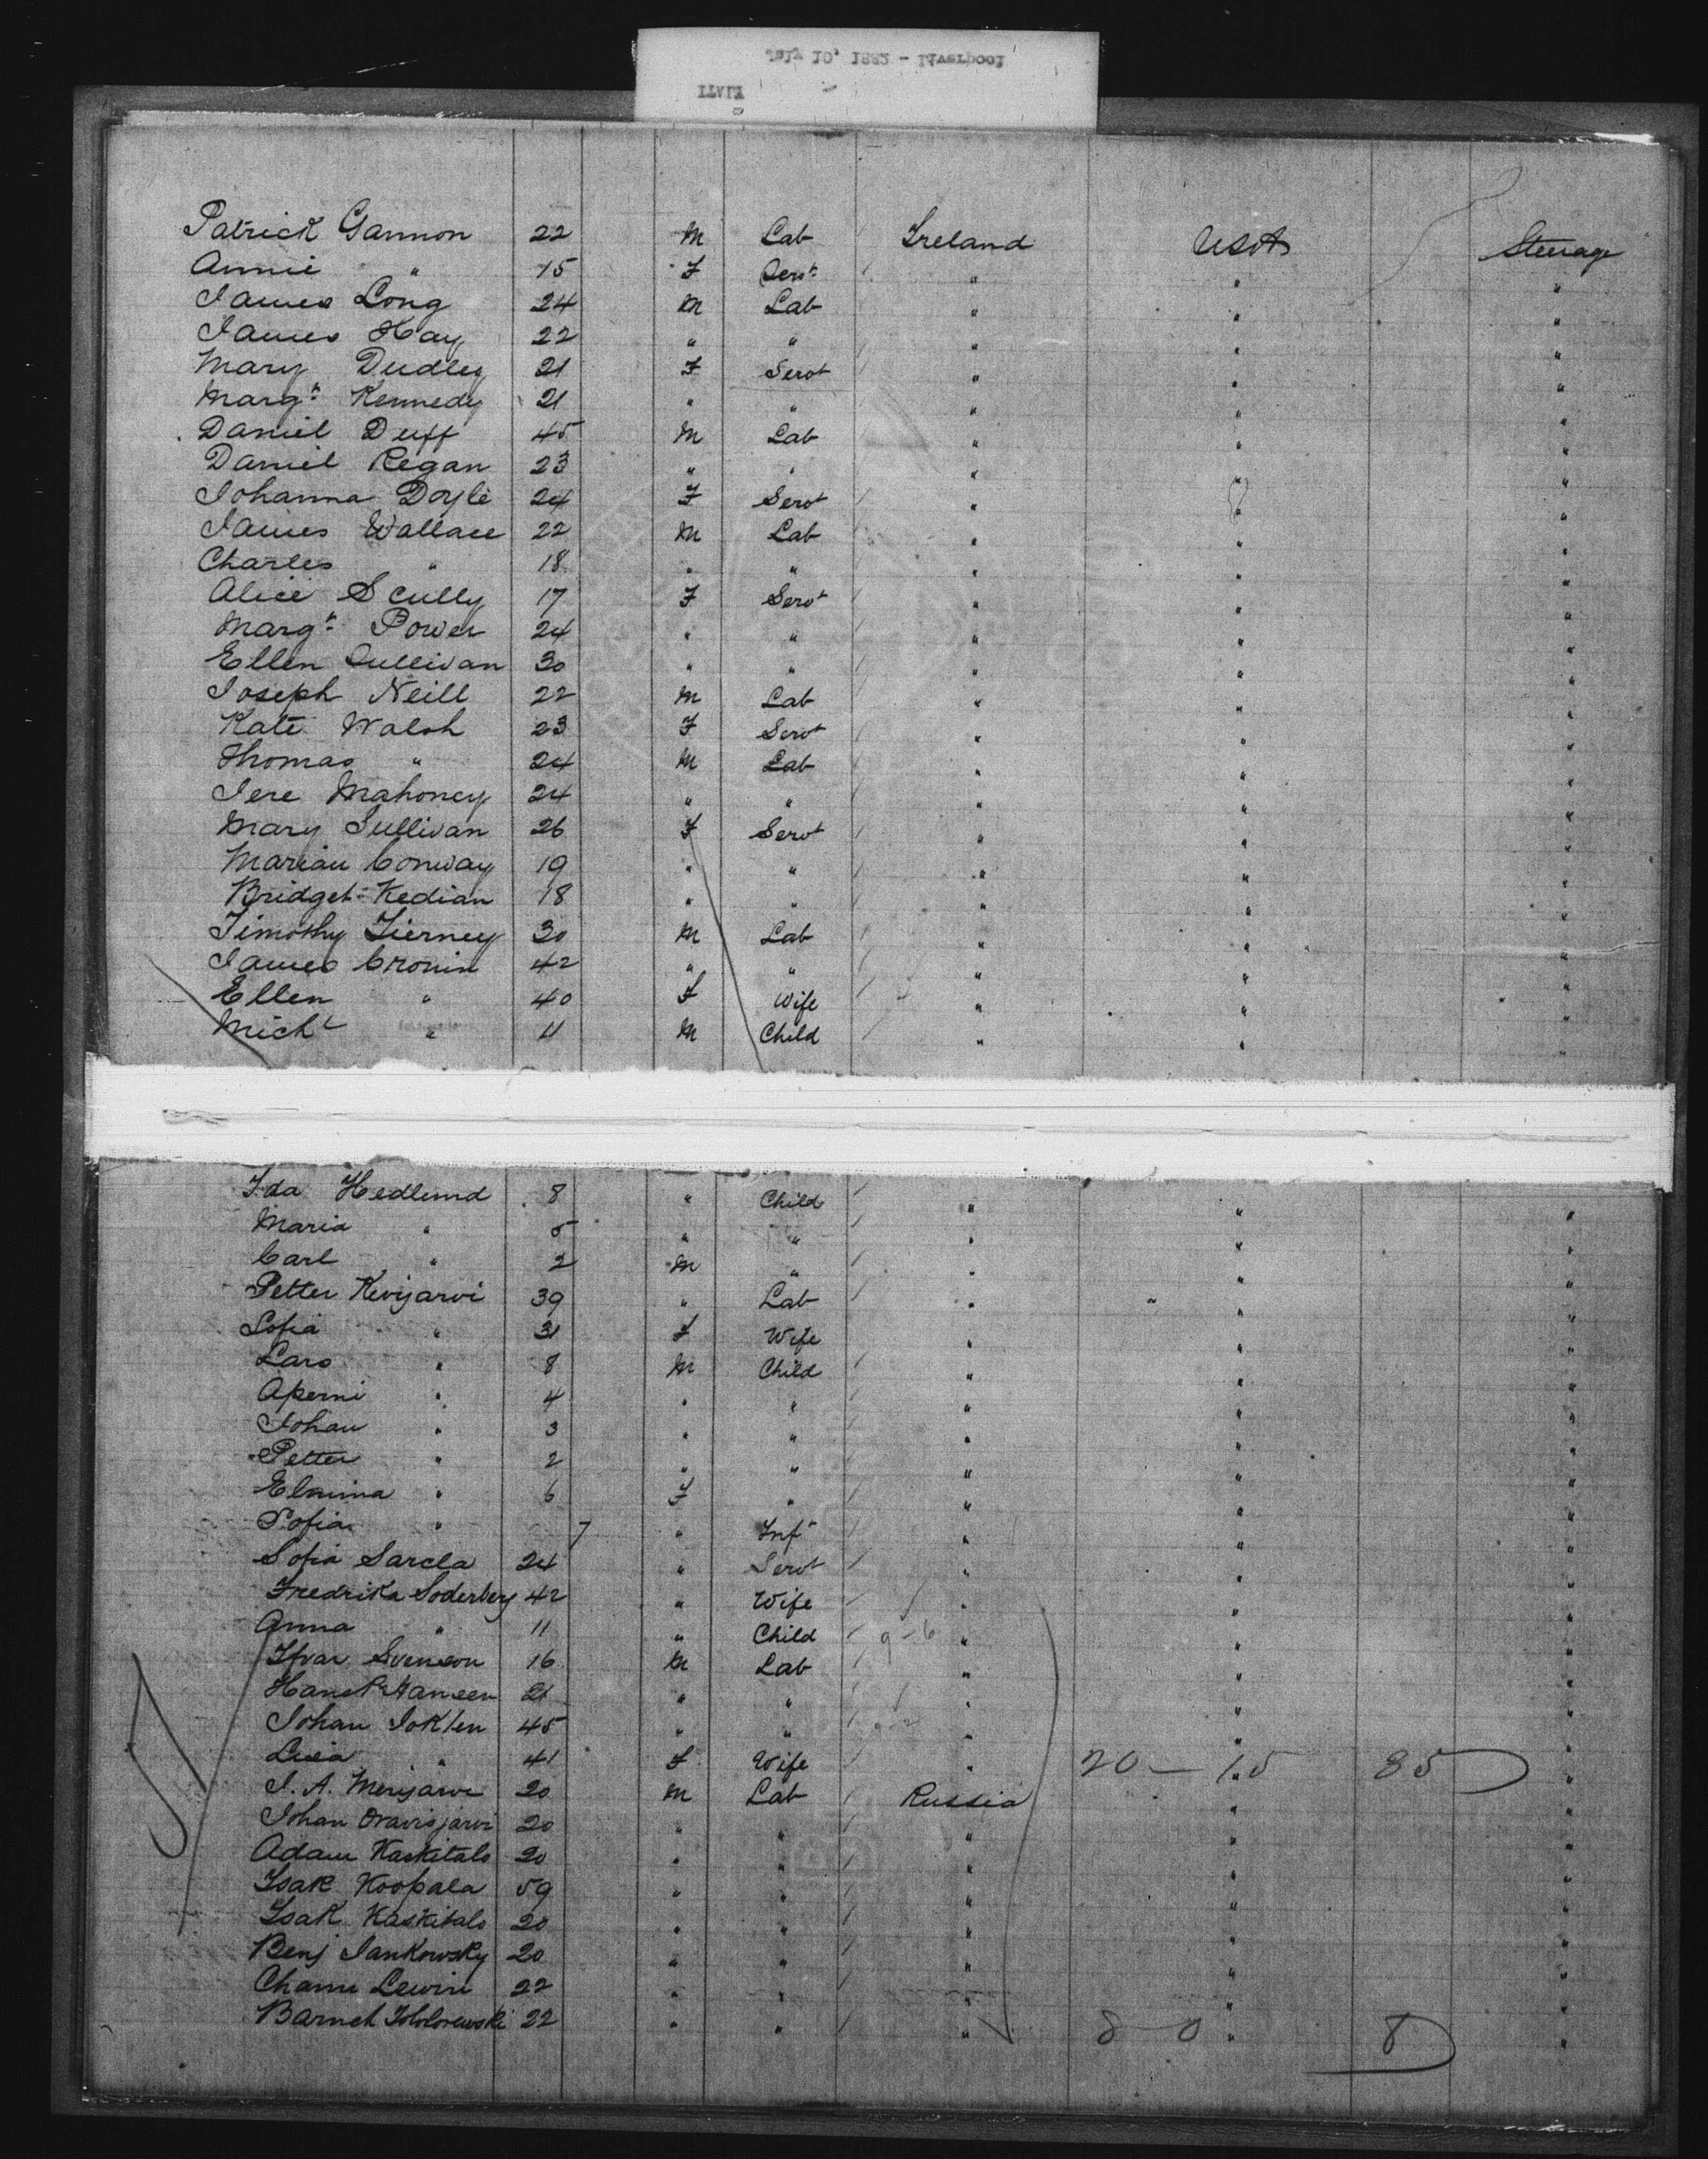 Patrick Gannon 22 M Lab Ireland USA Steerage
Annie " 15 F Servt " " "
James Long 24 M Lab " " "
James Hay 22 " " " " "
Mary Dudley 21 F Servt " " "
Margt Kennedy 21 " " " " "
Daniel Duff 45 M Lab " " "
Daniel Regan 23 " " " " "
Johanna Doyle 24 F Servt " " "
James Wallace 22 M Lab " " "
Charles " 18 " " " " "
Alice Scully 17 F Servt " " "
Margt Power 24 " " " " "
Ellen Sullivan 30 " " " " "
Joseph Neill 22 M Lab " " "
Kate Walsh 23 F Servt " " "
Thomas " 24 M Lab " " "
Jere Mahoney 24 " " " " "
Mary Sullivan 26 F Servt " " "
Marian Conway 19 " " " " "
Bridget Kedian 18 " " " " "
Timothy Tierney 30 M Lab " " "
James Cronin 42 " " " " "
Ellen " 40 F Wife " " "
Michl " 11 M Child " " "
Ida Hedlund 8 " Child " " "
Maria " 5 " " " " "
Carl " 2 M " " " "
Petter Kevijarvi 39 " Lab " " "
Sofia " 31 F Wife " " "
Lars " 8 M Child " " "
" 4 " " " " "
Johan " 3 " " " " "
Petter " 2 " " " " "
" 6 F " " " "
Sofia " 7 " Inft " " "
Sofia Sarela 24 " Servt " " "
Fredrika Soderberg 42 " Wife " " "
Anna " 11 " Child 9-6 " " "
Ifvar Svenson 16 M Lab " " "
Hans P Hansen 21 " " " " "
Johan 45 " " " " "
" 41 F Wife " 20 - 15 85 "
J. A. Merijarvi 20 M Lab Russia " "
Johan 20 " " " " "
Adam Kaskitalo 20 " " " " "
Isak Koopala 59 " " " " "
Isak Kaskitalo 20 " " " " "
Benj Jankowsky 20 " " " " "
Lewin 22 " " " " "
22 " " " 8 0 " 8 "